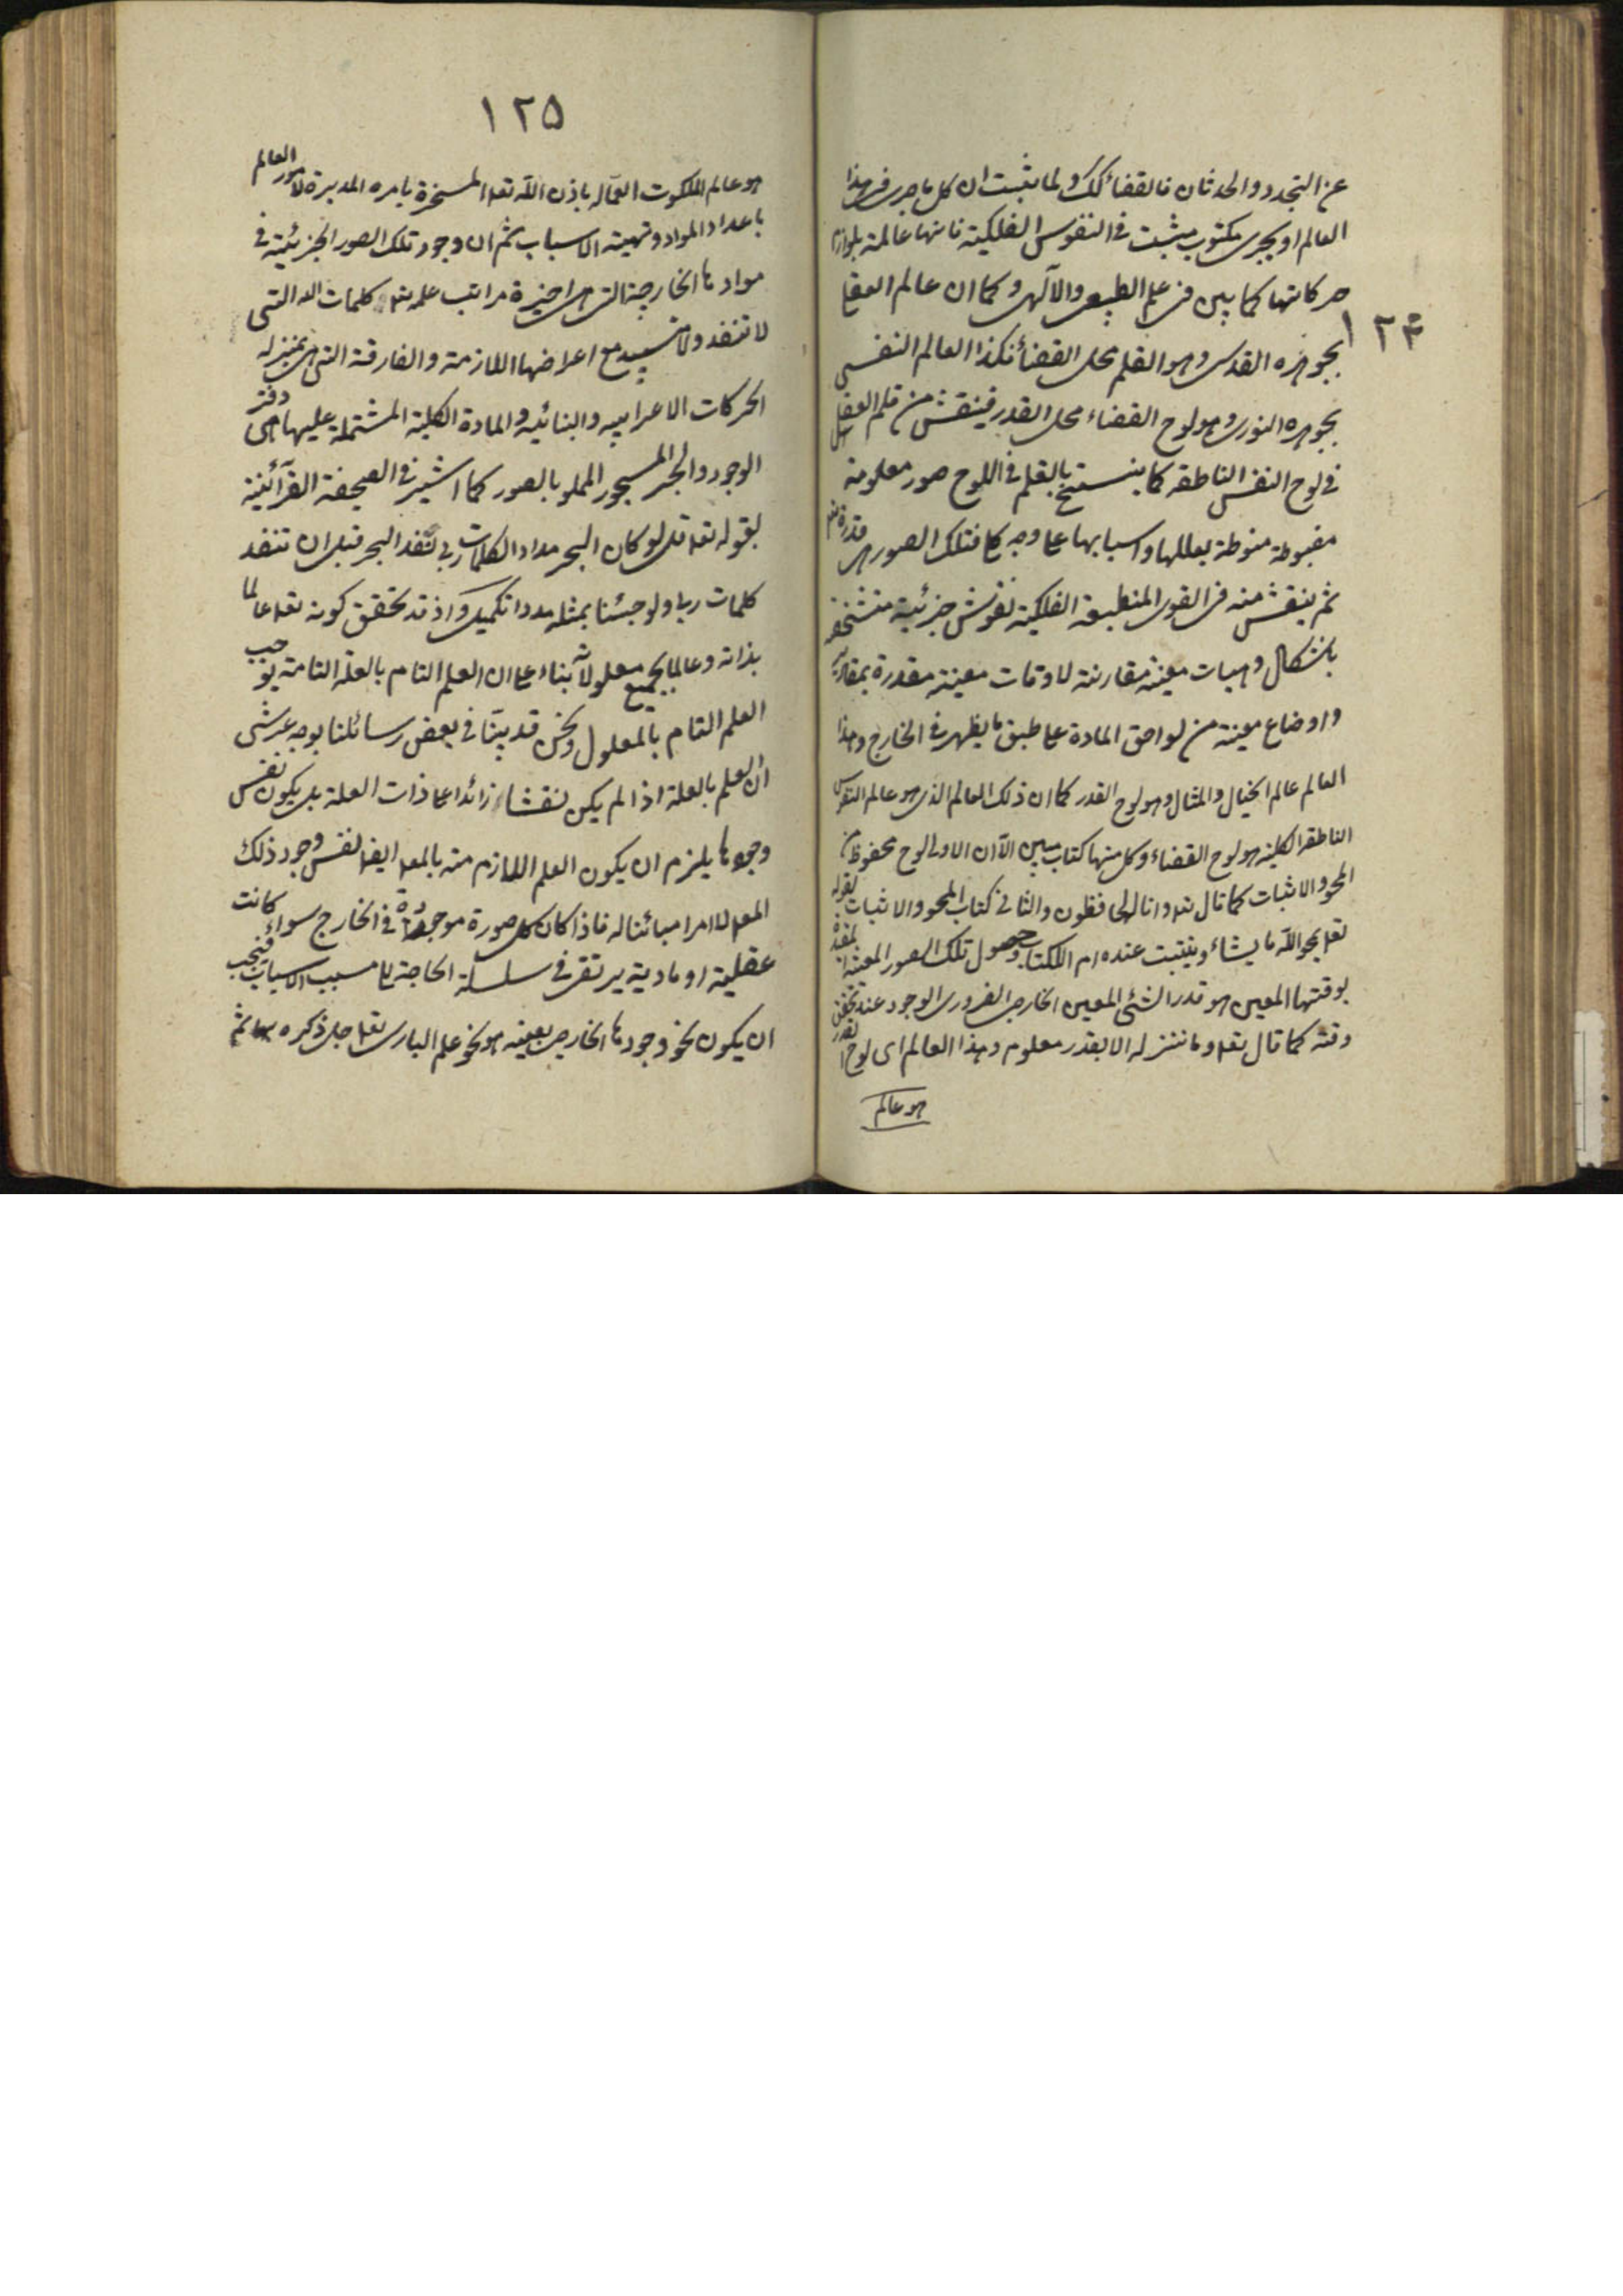 ١٢۴
عن التجدد والحدثان فالقضاء كك ولما يثبت ان كل ما جرى فى هذا
العالم او يجرى مكتوب مثبت فى النفوس الفلكية فانها عالمة بلوازم
حركاتها كما بين فى علم الطبيعى والآلهى وكما ان عالم العقل
بجوهره القدسى وهو القلم محل القضاء فكذا العالم النفسى
بجوهره النورى وهو لوح القضاء محل القدر فينقش من قلم العقل
فى لوح النفس الناطقه كما ينستخ بالقلم فى اللوح صور معلومة
مضبوطة منوطة بعللها واسبابها على وجه كلى فتلك الصور هى قدرة تعـ
ثم ينقش منه فى القوى المنطبعة الفلكية نقوش جزئية متشخصه
باشكال وهيات معينة مقارنة لاوقات معينة مقدرة بمقادير
واوضاع معينة من لواحق المادة على طبق ما يظهر فى الخارج وهذا
العالم عالم الخيال والمثال وهو لوح القدر كما ان ذلك العالم الذى هو عالم النفوس
الناطقة الكلية هو لوح القضاء وكل منهما كتاب مبين الا ان الاولى لوح محفوظ من
المحو والاثبات كما قال تعـ وانا له لحافظون والثانى كتاب المحو والاثبات لقوله
تعـ يمحوالله ما يشاء ويثبت وعنده ام الكتاب وحصول تلك الصور المعينة
بوقتها المعين هو قدر الشئ المعين الخارجى الضرورى الوجود عند تحقق
وقته كما قال تعـ وما ننزله الا بقدر معلوم وهذا العالم اى لوح القدر
هو عالم
١٢۵
هو عالم الملكوت العمّاله باذن الله تعـ المسخرة بامره المدبرة لامور العالم
باعداد المواد وتهيئة الاسباب ثم ان وجود تلك الصور الجزئية فى
موادها الخارجية التى هى اخيرة مراتب علمه تعـ كلمات الله التى
لا تنفد ولا تبيد مع اعراضها اللازمة والمفارقة التى هى بمنزله
الحركات الاعرابيه والبنائيه والمادة الكلية المشتملة عليها هى دفتر
الوجود والبحر المسجور المملو بالصور كما اشير فى الصحيفة القرآنية
بقوله تعـ قل لو كان البحر مدادا لكلمات ربى لنفد البحر قبل ان تنفد
كلمات ربى ولو جئنا بمثله مددا تكميل واذ قد تحقق كونه تعـ عالما
بذاته وعالما بجميع معلولاته بناء على ان العلم التام بالعلة التامة يوجب
العلم التام بالمعلول ونحن قد بيّنا فى بعض رسائلنا بوجه عرشى
ان العلم بالعلة اذا لم يكن نقشا زائدا على ذات العلة بل يكون نفس
وجودها يلزم ان يكون العلم اللازم منه بالمعـ ايضا نفس وجود ذلك
المعـ لا امرا مبائنا له فاذا كان كل صورة موجودة فى الخارج سواء كانت
عقلية او مادية يرتقى فى سلسلة الحاجة الى مسبب الاسباب فيجب
ان يكون نحو وجودها الخارجى بعينه هو نحو علم البارى تعـ جل ذكره بها ثم